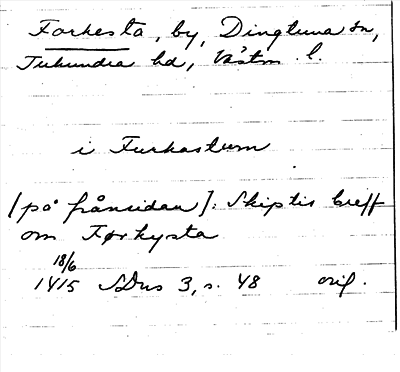 Forkesta, by, Dingtuna sn,
Tuhundra hd, Västm l.
i Furkastum
[på frånsidan]: Skiptis breff
om Førkysta
18/6
1415 SDns 3, s. 48 orig.